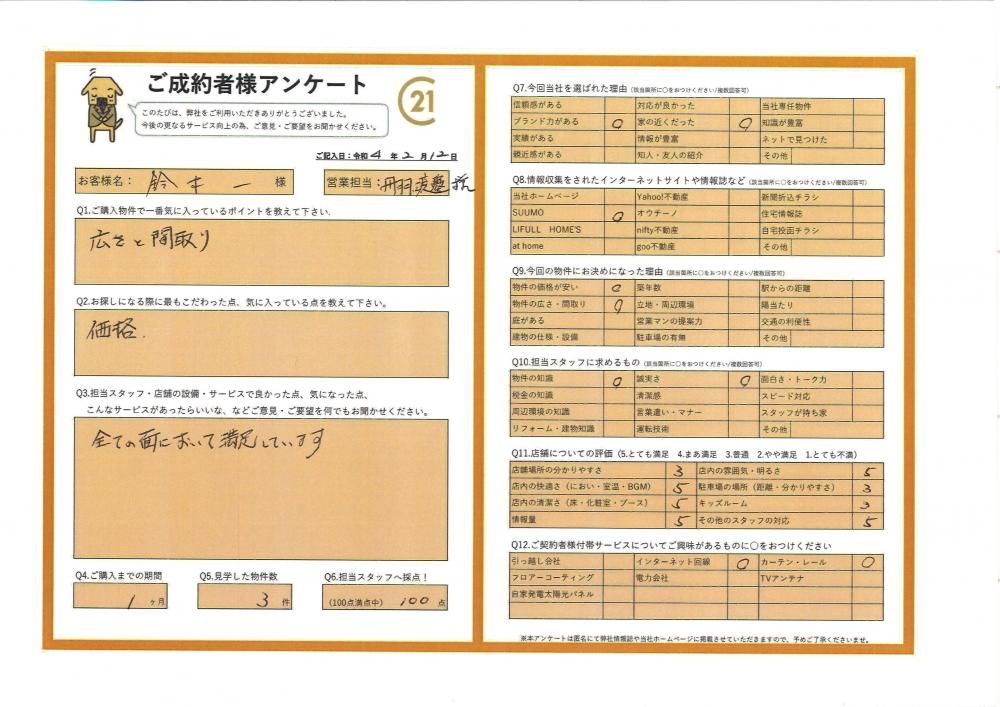 ご成約者様アンケート
21
このたびは、弊社をご利用いただきありがとうございました。
今後の更なるサービス向上の為、ご意見・ご要望をお聞かせください。
ご記入日：令和 4 年 2 月 12 日
お客様名： 鈴木 一 様
営業担当：丹羽
Q1.ご購入物件で一番気に入っているポイントを教えて下さい.
広さと間取り
Q2.お探しになる際に最もこだわった点、気に入っている点を教えて下さい。
価格.
Q3.担当スタッフ・店舗の設備・サービスで良かった点、気になった点、
こんなサービスがあったらいいな、などご意見・ご要望を何でもお聞かせください。
全ての面において満足しています
Q4.ご購入までの期間
1 ヶ月
Q5.見学した物件数
3 件
Q6.担当スタッフへ採点！
(100点満点中) 100 点
Q7.今回当社を選ばれた理由 (該当箇所に〇をおつけください/複数回答可)
信頼感がある 対応が良かった 当社専任物件
ブランド力がある ○ 家の近くだった ○ 知識が豊富
実績がある 情報が豊富 ネットで見つけた
親近感がある 知人・友人の紹介 その他
Q8.情報収集をされたインターネットサイトや情報誌など (該当箇所に〇をおつけください/複数回答可)
当社ホームページ Yahoo!不動産 新聞折込チラシ
SUUMO ○ オウチーノ 住宅情報誌
LIFULL HOME'S nifty不動産 自宅投函チラシ
at home goo不動産 その他
Q9.今回の物件にお決めになった理由 (該当箇所に〇をおつけください/複数回答可)
物件の価格が安い ○ 築年数 駅からの距離
物件の広さ・間取り ○ 立地・周辺環境 陽当たり
庭がある 営業マンの提案力 交通の利便性
建物の仕様・設備 駐車場の有無 その他
Q10.担当スタッフに求めるもの (該当箇所に〇をおつけください/複数回答可)
物件の知識 ○ 誠実さ ○ 面白さ・トーク力
税金の知識 清潔感 スピード対応
周辺環境の知識 言葉遣い・マナー スタッフが持ち家
リフォーム・建物知識 運転技術 その他
Q11.店舗についての評価（5.とても満足 4.まあ満足 3.普通 2.やや満足 1.とても不満）
店舗場所の分かりやすさ 3 店内の雰囲気・明るさ 5
店内の快適さ（におい・室温・BGM） 5 駐車場の場所（距離・分かりやすさ） 3
店内の清潔さ（床・化粧室・ブース） 5 キッズルーム 3
情報量 5 その他のスタッフの対応 5
Q12.ご契約者様付帯サービスについてご興味があるものに〇をおつけください
引っ越し会社 インターネット回線 ○ カーテン・レール ○
フロアーコーティング 電力会社 TVアンテナ
自家発電太陽光パネル
※本アンケートは匿名にて弊社情報誌や当社ホームページに掲載させていただきますので、予めご了承くださいませ。